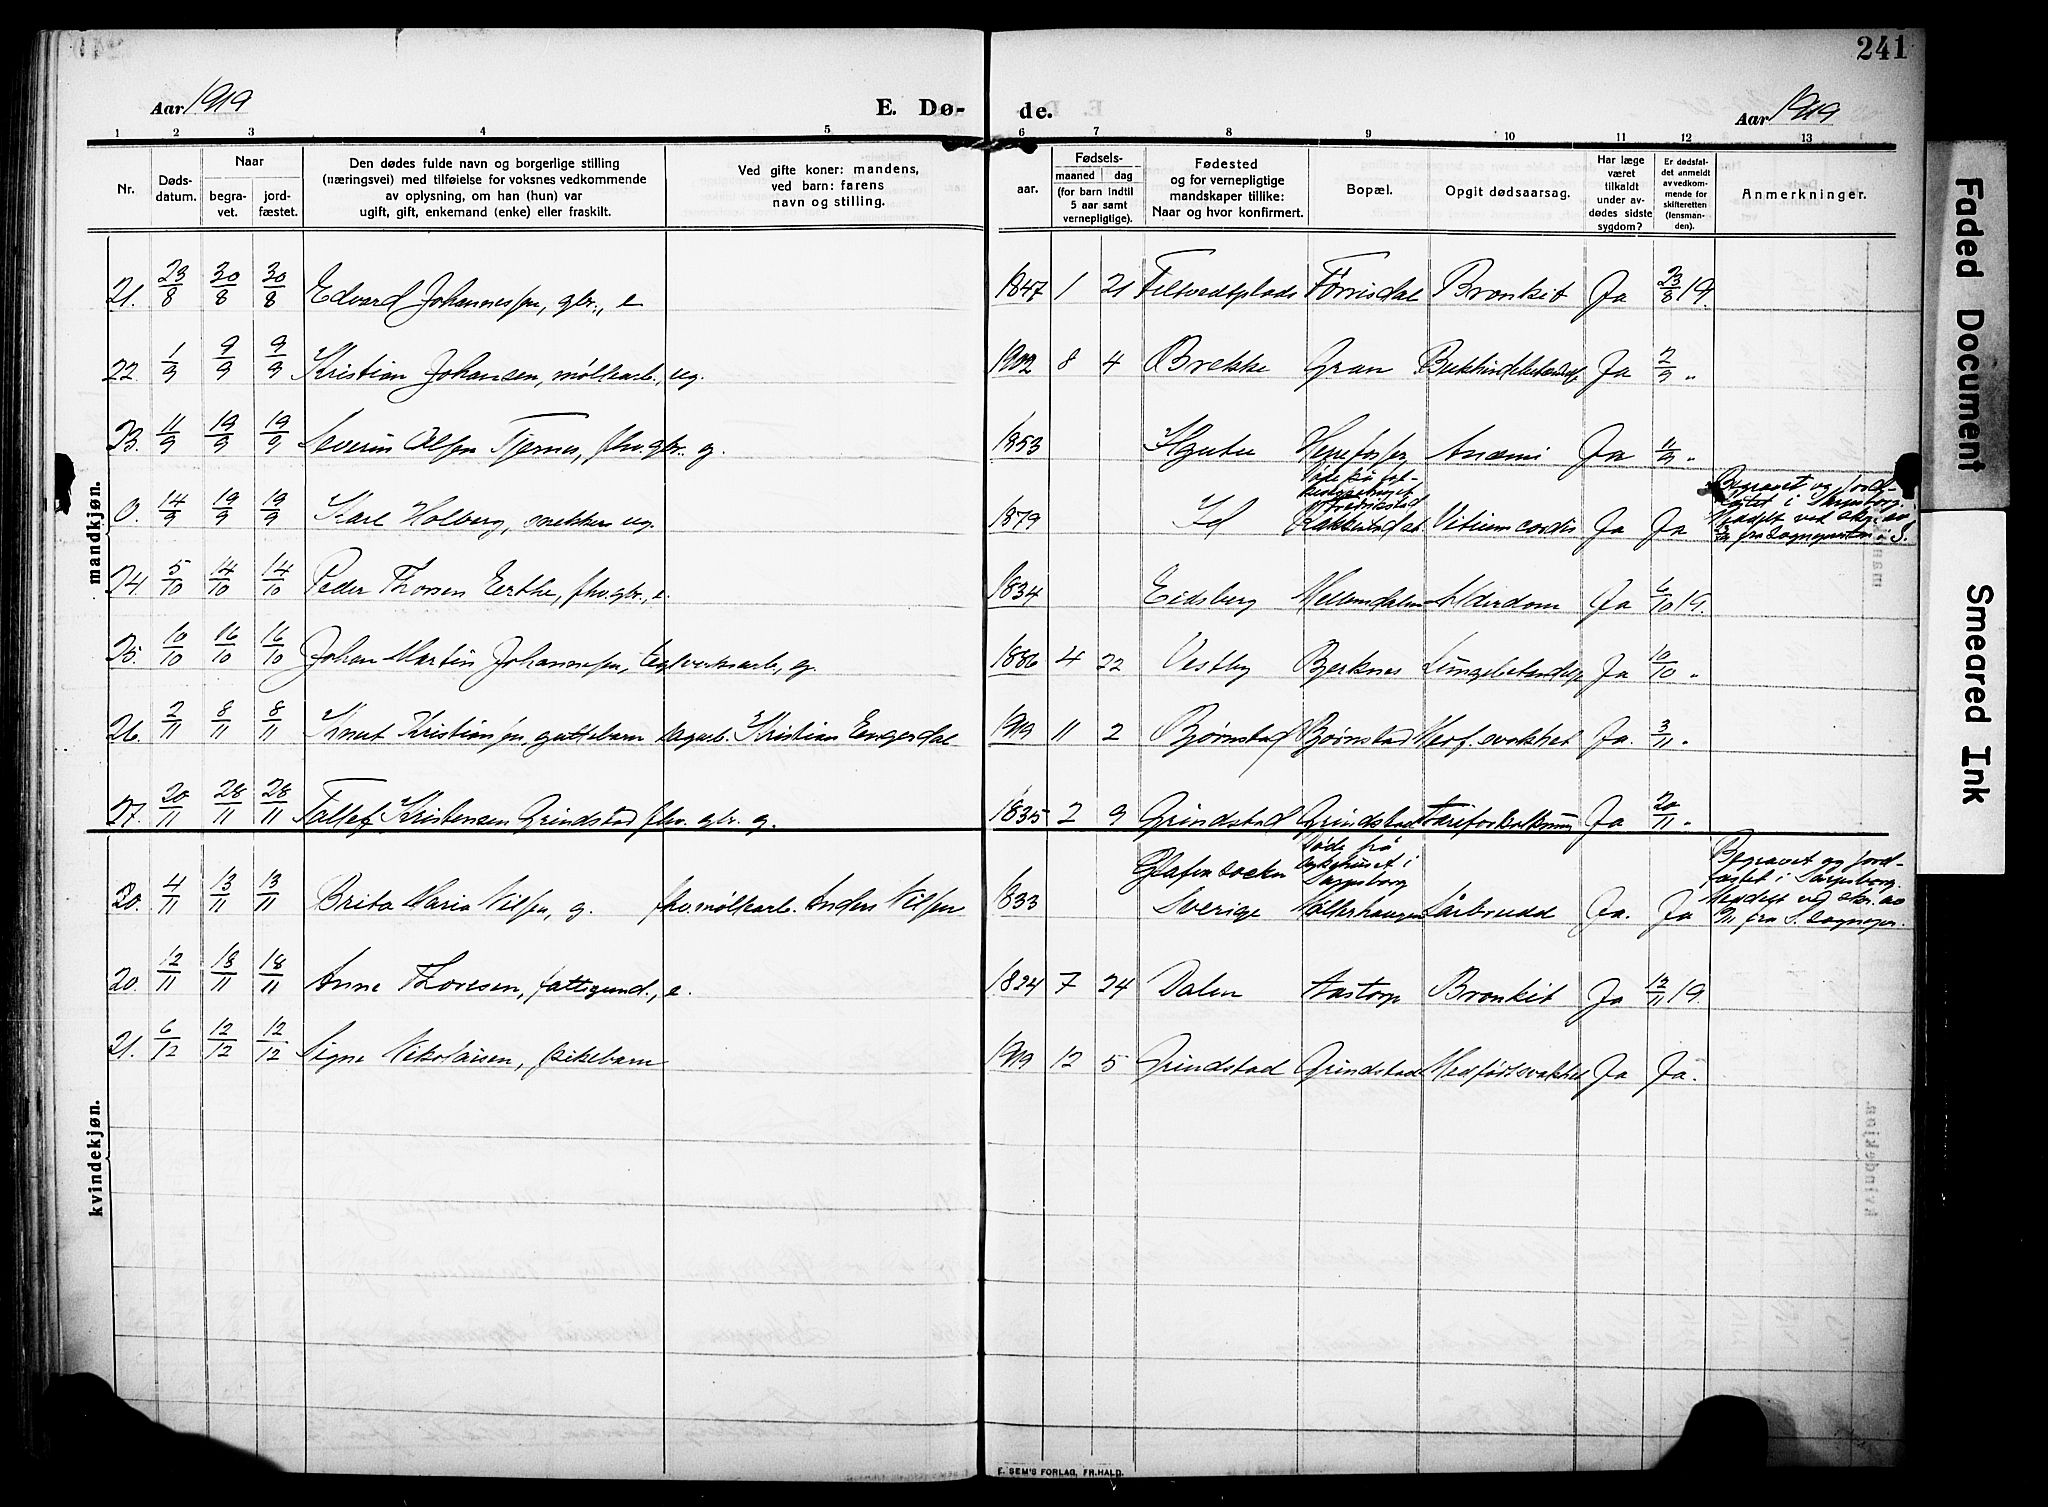 241
Aar 1919
E. Dø-
de.
Aar 1919
1 2 3 4 5 6 7 8 9 10 11 12 13
Nr.
Døds-
datum.
Naar
begra-
vet.
jord-
fæstet.
Den dødes fulde navn og borgerlige stilling
(næringsvei) med tilføielse for voksnes vedkommende
av oplysning, om han (hun) var
ugift, gift, enkemand (enke) eller fraskilt.
Ved gifte koner: mandens,
ved barn: farens
navn og stilling.
Fødsels-
aar.
maaned dag
(for barn indtil
5 aar samt
vernepligtige).
Fødested
og for vernepligtige
mandskaper tillike:
Naar og hvor konfirmert.
Bopæl.
Opgit dødsaarsag.
Har læge
været
tilkaldt
under av-
dødes sidste
sygdom?
Er dødsfal-
det anmeldt
av vedkom-
mende for
skifteretten
(lensman-
den).
Anmerkninger.
mandkjøn.
21. 23/8 30/8 30/8 Edvard Johannessen, gbr., e 1847 1 21 Tørrisdal Bronkit Ja 23/8 19.
22. 1/9 9/9 9/9 Kristian Johansen, møllearb., ug. 1902 8 4 Brekke Gran Ja 2/9 "
23. 11/9 19/9 19/9 Severin Olsen Tjernes, fhv. gbr. g. 1853 Anæmi Ja 11/9 "
0. 14/9 19/9 19/9 Karl Holberg, snekker ug. 1879 Id Vitium cordis Ja Ja
Begravet og jord-
fæstet i Sarpsborg.
24. 5/10 14/10 14/10 Peder Thoresen Eerthe, fhv. gbr., e. 1834 Eidsberg Mellemdalen Alderdom Ja 6/10 19.
25. 10/10 16/10 16/10 Johan Martin Johannessen, teglverksarb., g. 1886 4 22 Vestby Bjerknes Lungebetændelse Ja 10/10 "
26. 2/11 8/11 8/11 Knut Kristiansen, guttebarn dagarb. Kristian Engerdal 1919 11 2 Bjørnstad Bjørnstad Medf. svakhet Ja. 3/11 "
27. 20/11 28/11 28/11 Tollef Kristensen Grindstad fhv. gbr. g. 1835 2 9 Grindstad Grindstad Ja 20/11 "
kvindekjøn.
20. 4/11 13/11 13/11 Brita Maria Nilsen, g. fhv. møllearb. Anders Nilsen 1833
Sverige
Døde på
sykehuset i
Sarpsborg
Ja. Ja
Begravet og jord-
fæstet i Sarpsborg.
20. 12/11 18/11 18/11 Anne Thoresen, fattigund., e. 1824 7 24 Dalen Aastorp Bronkit Ja 12/11 19.
21. 6/12 12/12 12/12 Signe Nikolaisen, pikebarn 1919 12 5 Grindstad Grindstad Medfødt svakhet Ja Ja.
F. SEM'S FORLAG, FR.HALD.
Faded Document
Smeared Ink